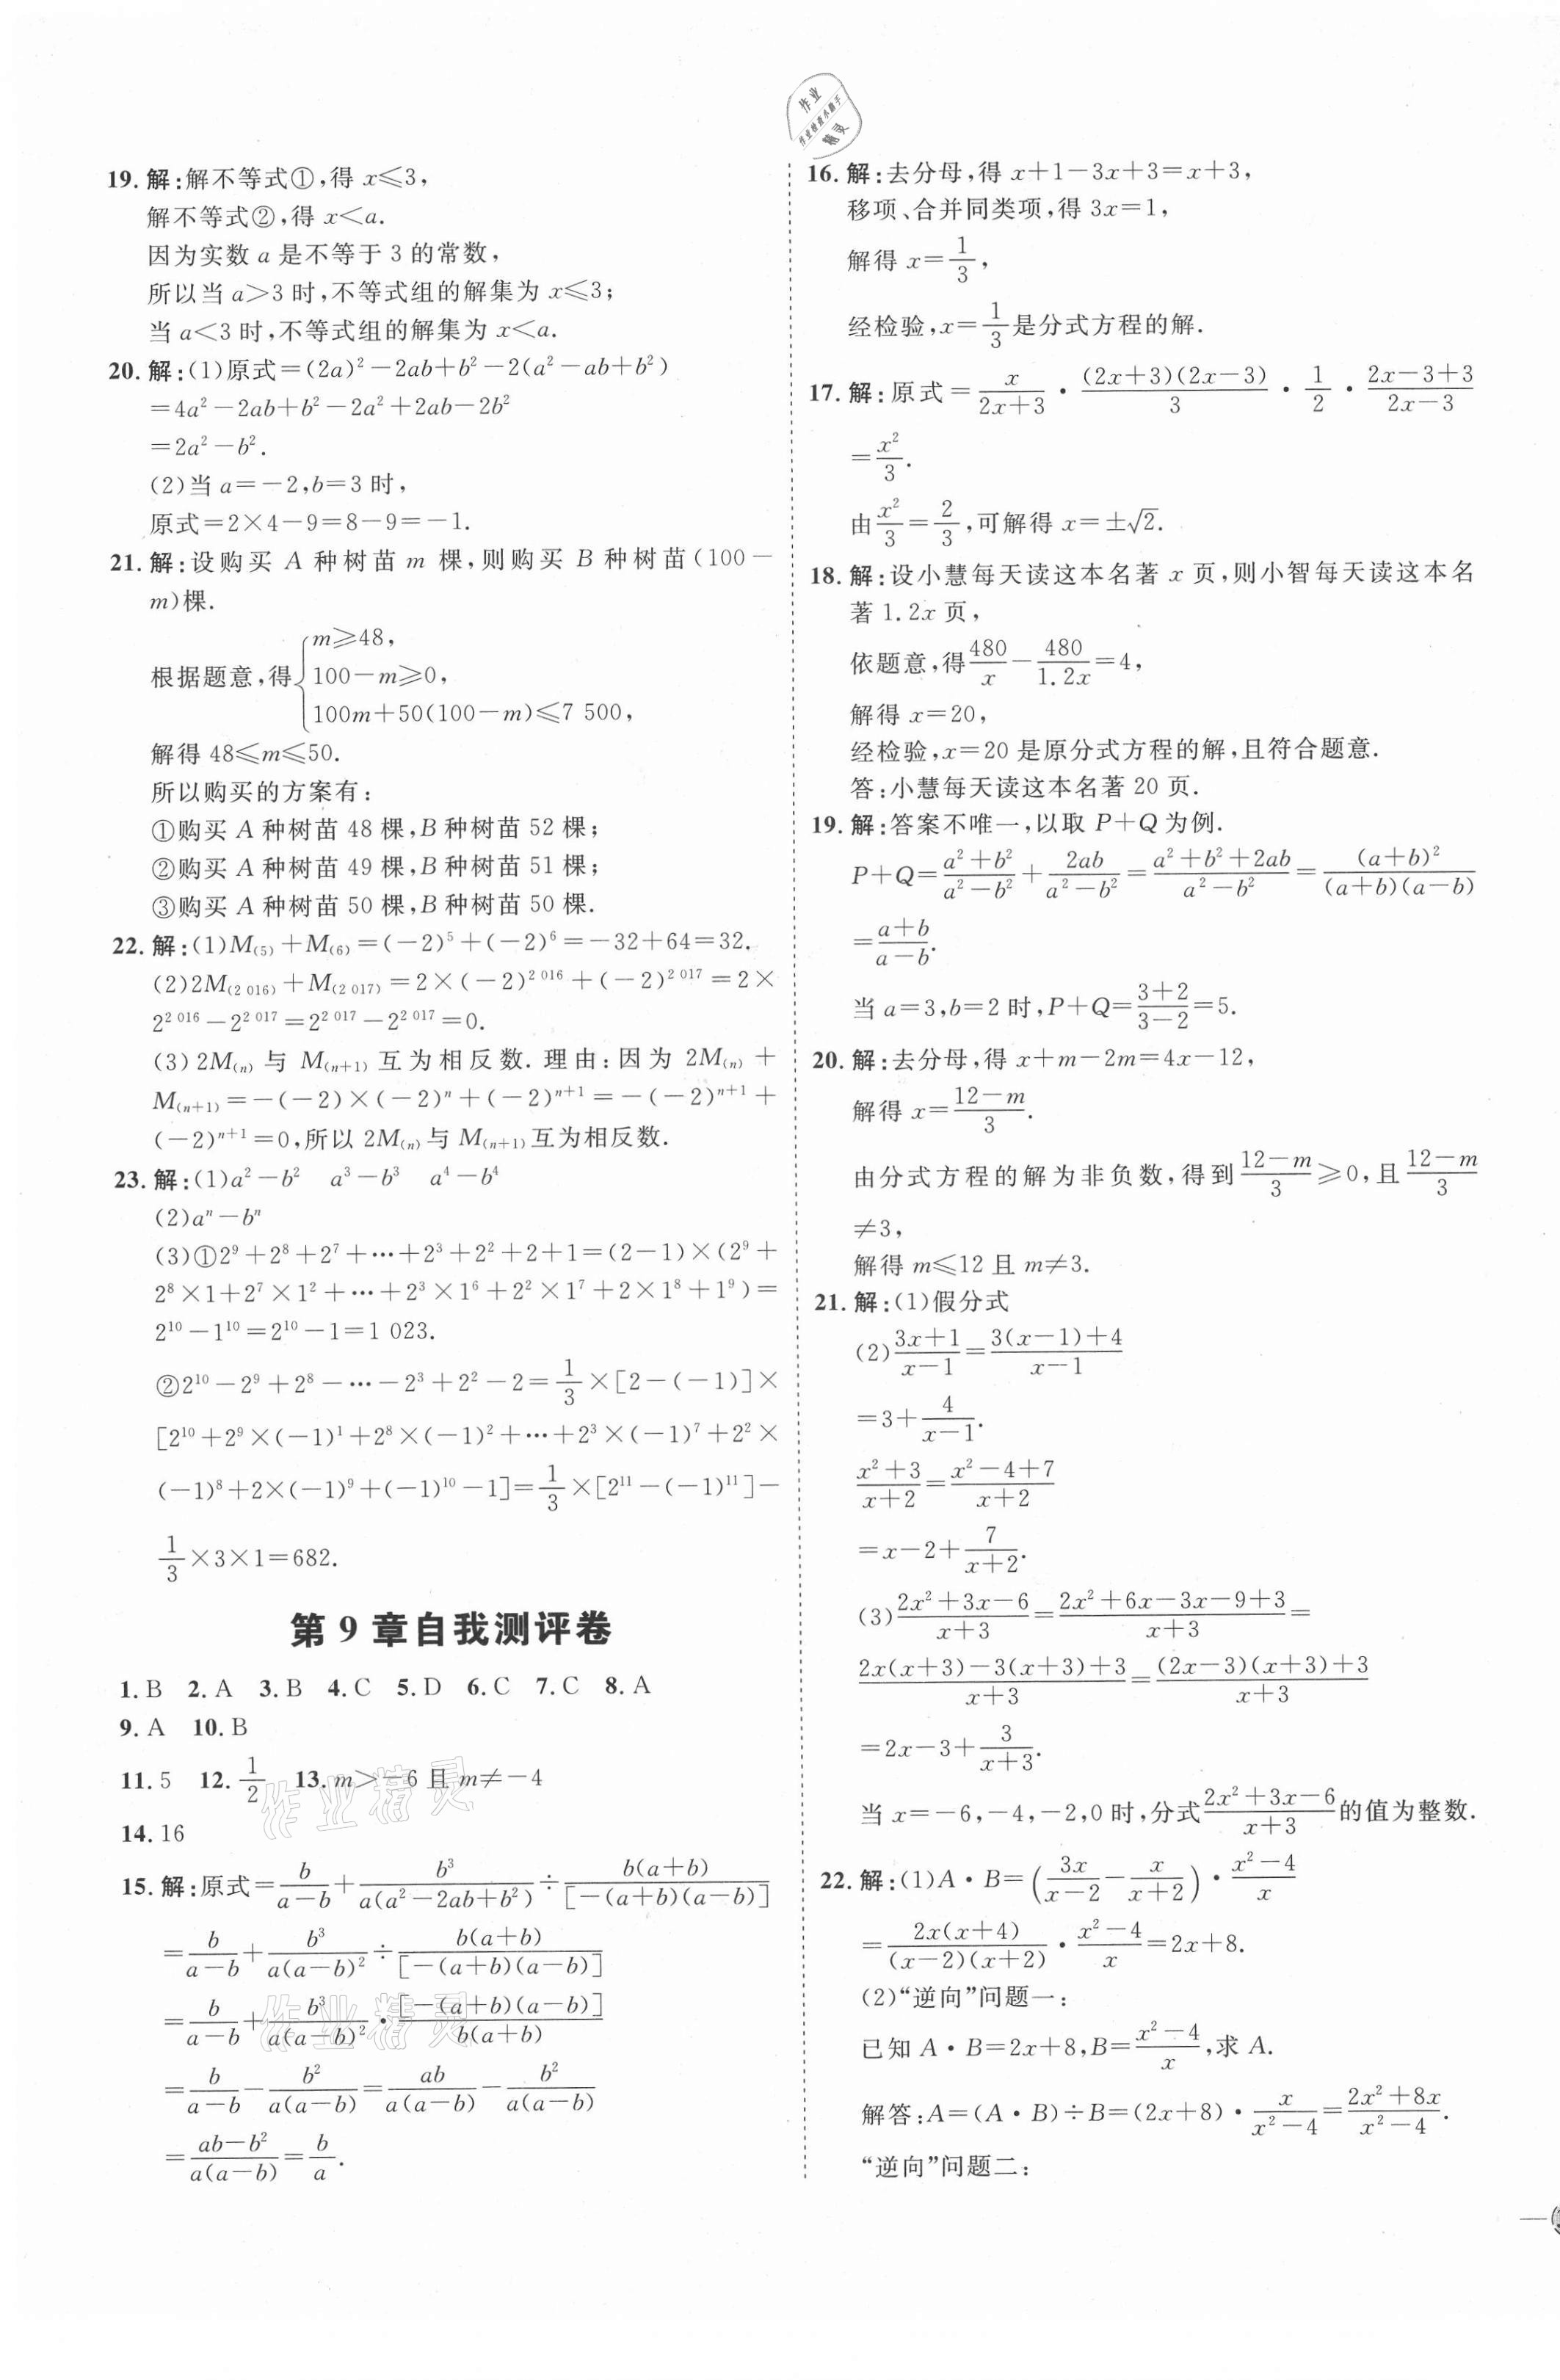 作业
作业检查小助手
精灵
19. 解:解不等式①,得 x≤3,
解不等式②,得 x<a.
因为实数 a 是不等于 3 的常数,
所以当 a>3 时,不等式组的解集为 x≤3;
当 a<3 时,不等式组的解集为 x<a.
20. 解:(1)原式=(2a)²-2ab+b²-2(a²-ab+b²)
=4a²-2ab+b²-2a²+2ab-2b²
=2a²-b².
(2)当 a=-2,b=3 时,
原式=2×4-9=8-9=-1.
21. 解:设购买 A 种树苗 m 棵,则购买 B 种树苗(100-
m)棵.
根据题意,得{m≥48,
100-m≥0,
100m+50(100-m)≤7 500,
解得 48≤m≤50.
所以购买的方案有:
①购买 A 种树苗 48 棵,B 种树苗 52 棵;
②购买 A 种树苗 49 棵,B 种树苗 51 棵;
③购买 A 种树苗 50 棵,B 种树苗 50 棵.
22. 解:(1)M₍₅₎+M₍₆₎=(-2)⁵+(-2)⁶=-32+64=32.
(2)2M₍₂ ₀₁₆₎+M₍₂ ₀₁₇₎=2×(-2)^{2 016}+(-2)^{2 017}=2×
2^{2 016}-2^{2 017}=2^{2 017}-2^{2 017}=0.
(3)2M₍ₙ₎与 M₍ₙ₊₁₎互为相反数. 理由:因为 2M₍ₙ₎+
M₍ₙ₊₁₎=-(-2)×(-2)ⁿ+(-2)ⁿ⁺¹=-(-2)ⁿ⁺¹+
(-2)ⁿ⁺¹=0,所以 2M₍ₙ₎与 M₍ₙ₊₁₎互为相反数.
23. 解:(1)a²-b² a³-b³ a⁴-b⁴
(2)aⁿ-bⁿ
(3)①2⁹+2⁸+2⁷+…+2³+2²+2+1=(2-1)×(2⁹+
2⁸×1+2⁷×1²+…+2³×1⁶+2²×1⁷+2×1⁸+1⁹)=
2¹⁰-1¹⁰=2¹⁰-1=1 023.
②2¹⁰-2⁹+2⁸-…-2³+2²-2=1/3×[2-(-1)]×
[2¹⁰+2⁹×(-1)¹+2⁸×(-1)²+…+2³×(-1)⁷+2²×
(-1)⁸+2×(-1)⁹+(-1)¹⁰-1]=1/3×[2¹¹-(-1)¹¹]-
1/3×3×1=682.
第 9 章自我测评卷
1. B 2. A 3. B 4. C 5. D 6. C 7. C 8. A
9. A 10. B
11. 5 12. 1/2 13. m>-6 且 m≠-4
14. 16
15. 解:原式=b/(a-b)+b³/(a(a²-2ab+b²))÷b(a+b)/[-(a+b)(a-b)]
=b/(a-b)+b³/(a(a-b)²)÷b(a+b)/[-(a+b)(a-b)]
=b/(a-b)+b³/(a(a-b)²)·[-(a+b)(a-b)]/(b(a+b))
=b/(a-b)-b²/(a(a-b))=ab/(a(a-b))-b²/(a(a-b))
=(ab-b²)/(a(a-b))=b/a.
作业精灵
作业精灵
16. 解:去分母,得 x+1-3x+3=x+3,
移项、合并同类项,得 3x=1,
解得 x=1/3,
经检验,x=1/3是分式方程的解.
17. 解:原式=x/(2x+3)·(2x+3)(2x-3)/3·1/2·(2x-3+3)/(2x-3)
=x²/3.
由x²/3=2/3,可解得 x=±√2.
18. 解:设小慧每天读这本名著 x 页,则小智每天读这本名
著 1.2x 页,
依题意,得480/x-480/1.2x=4,
解得 x=20,
经检验,x=20 是原分式方程的解,且符合题意.
答:小慧每天读这本名著 20 页.
19. 解:答案不唯一,以取 P+Q 为例.
P+Q=(a²+b²)/(a²-b²)+2ab/(a²-b²)=(a²+b²+2ab)/(a²-b²)=(a+b)²/((a+b)(a-b))
=(a+b)/(a-b).
当 a=3,b=2 时,P+Q=(3+2)/(3-2)=5.
20. 解:去分母,得 x+m-2m=4x-12,
解得 x=(12-m)/3.
由分式方程的解为非负数,得到(12-m)/3≥0,且(12-m)/3
≠3,
解得 m≤12 且 m≠3.
21. 解:(1)假分式
(2)(3x+1)/(x-1)=(3(x-1)+4)/(x-1)
=3+4/(x-1).
(x²+3)/(x+2)=(x²-4+7)/(x+2)
=x-2+7/(x+2).
(3)(2x²+3x-6)/(x+3)=(2x²+6x-3x-9+3)/(x+3)=
(2x(x+3)-3(x+3)+3)/(x+3)=((2x-3)(x+3)+3)/(x+3)
=2x-3+3/(x+3).
当 x=-6,-4,-2,0 时,分式(2x²+3x-6)/(x+3)的值为整数.
22. 解:(1)A·B=(3x/(x-2)-x/(x+2))·(x²-4)/x
=2x(x+4)/((x-2)(x+2))·(x²-4)/x=2x+8.
(2)“逆向”问题一:
已知 A·B=2x+8,B=(x²-4)/x,求 A.
解答:A=(A·B)÷B=(2x+8)·x/(x²-4)=(2x²+8x)/(x²-4).
“逆向”问题二: